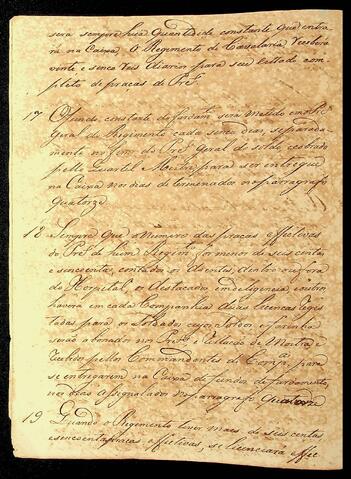 será sempre húa quantidade constante que entra
rá na Caixa. O Regimento de Cavalaria recebera
vinte e sinco reis diarios para seu estado com
pleto de praças de Pret.
17 O fundo constante do fardam.to será metido em Pret
Geral do Regimento cada sinco dias, separada
mente no forro do Pret Geral do soldo cobrado
pello Quartel Mestre para ser entregue
na Caixa nos dias determinados no parragrafo
Quatorze
18 Sempre que o numero das praças effectivas
do Pret de hum Regim.to for menor de seis centas
e sincoenta, contados os doentes, dentro ou fora
do Hospital, os destacados, em deligencia, e outros
haverá em cada Companhia duas licenças regis
tadas para os Soldados cujos soldos e farinha
serão abonados nos Pret.s e Rellação de Mostra e
recebido pellos Commandantes de Comp.a para
se entregarem na Caixa de fundos do fardamento
nos dias assignalados no parragrafo Quatorze
19 Quando o Regimento tiver mais de seis centas
e sincoenta praças effectivas, se licenciará effec